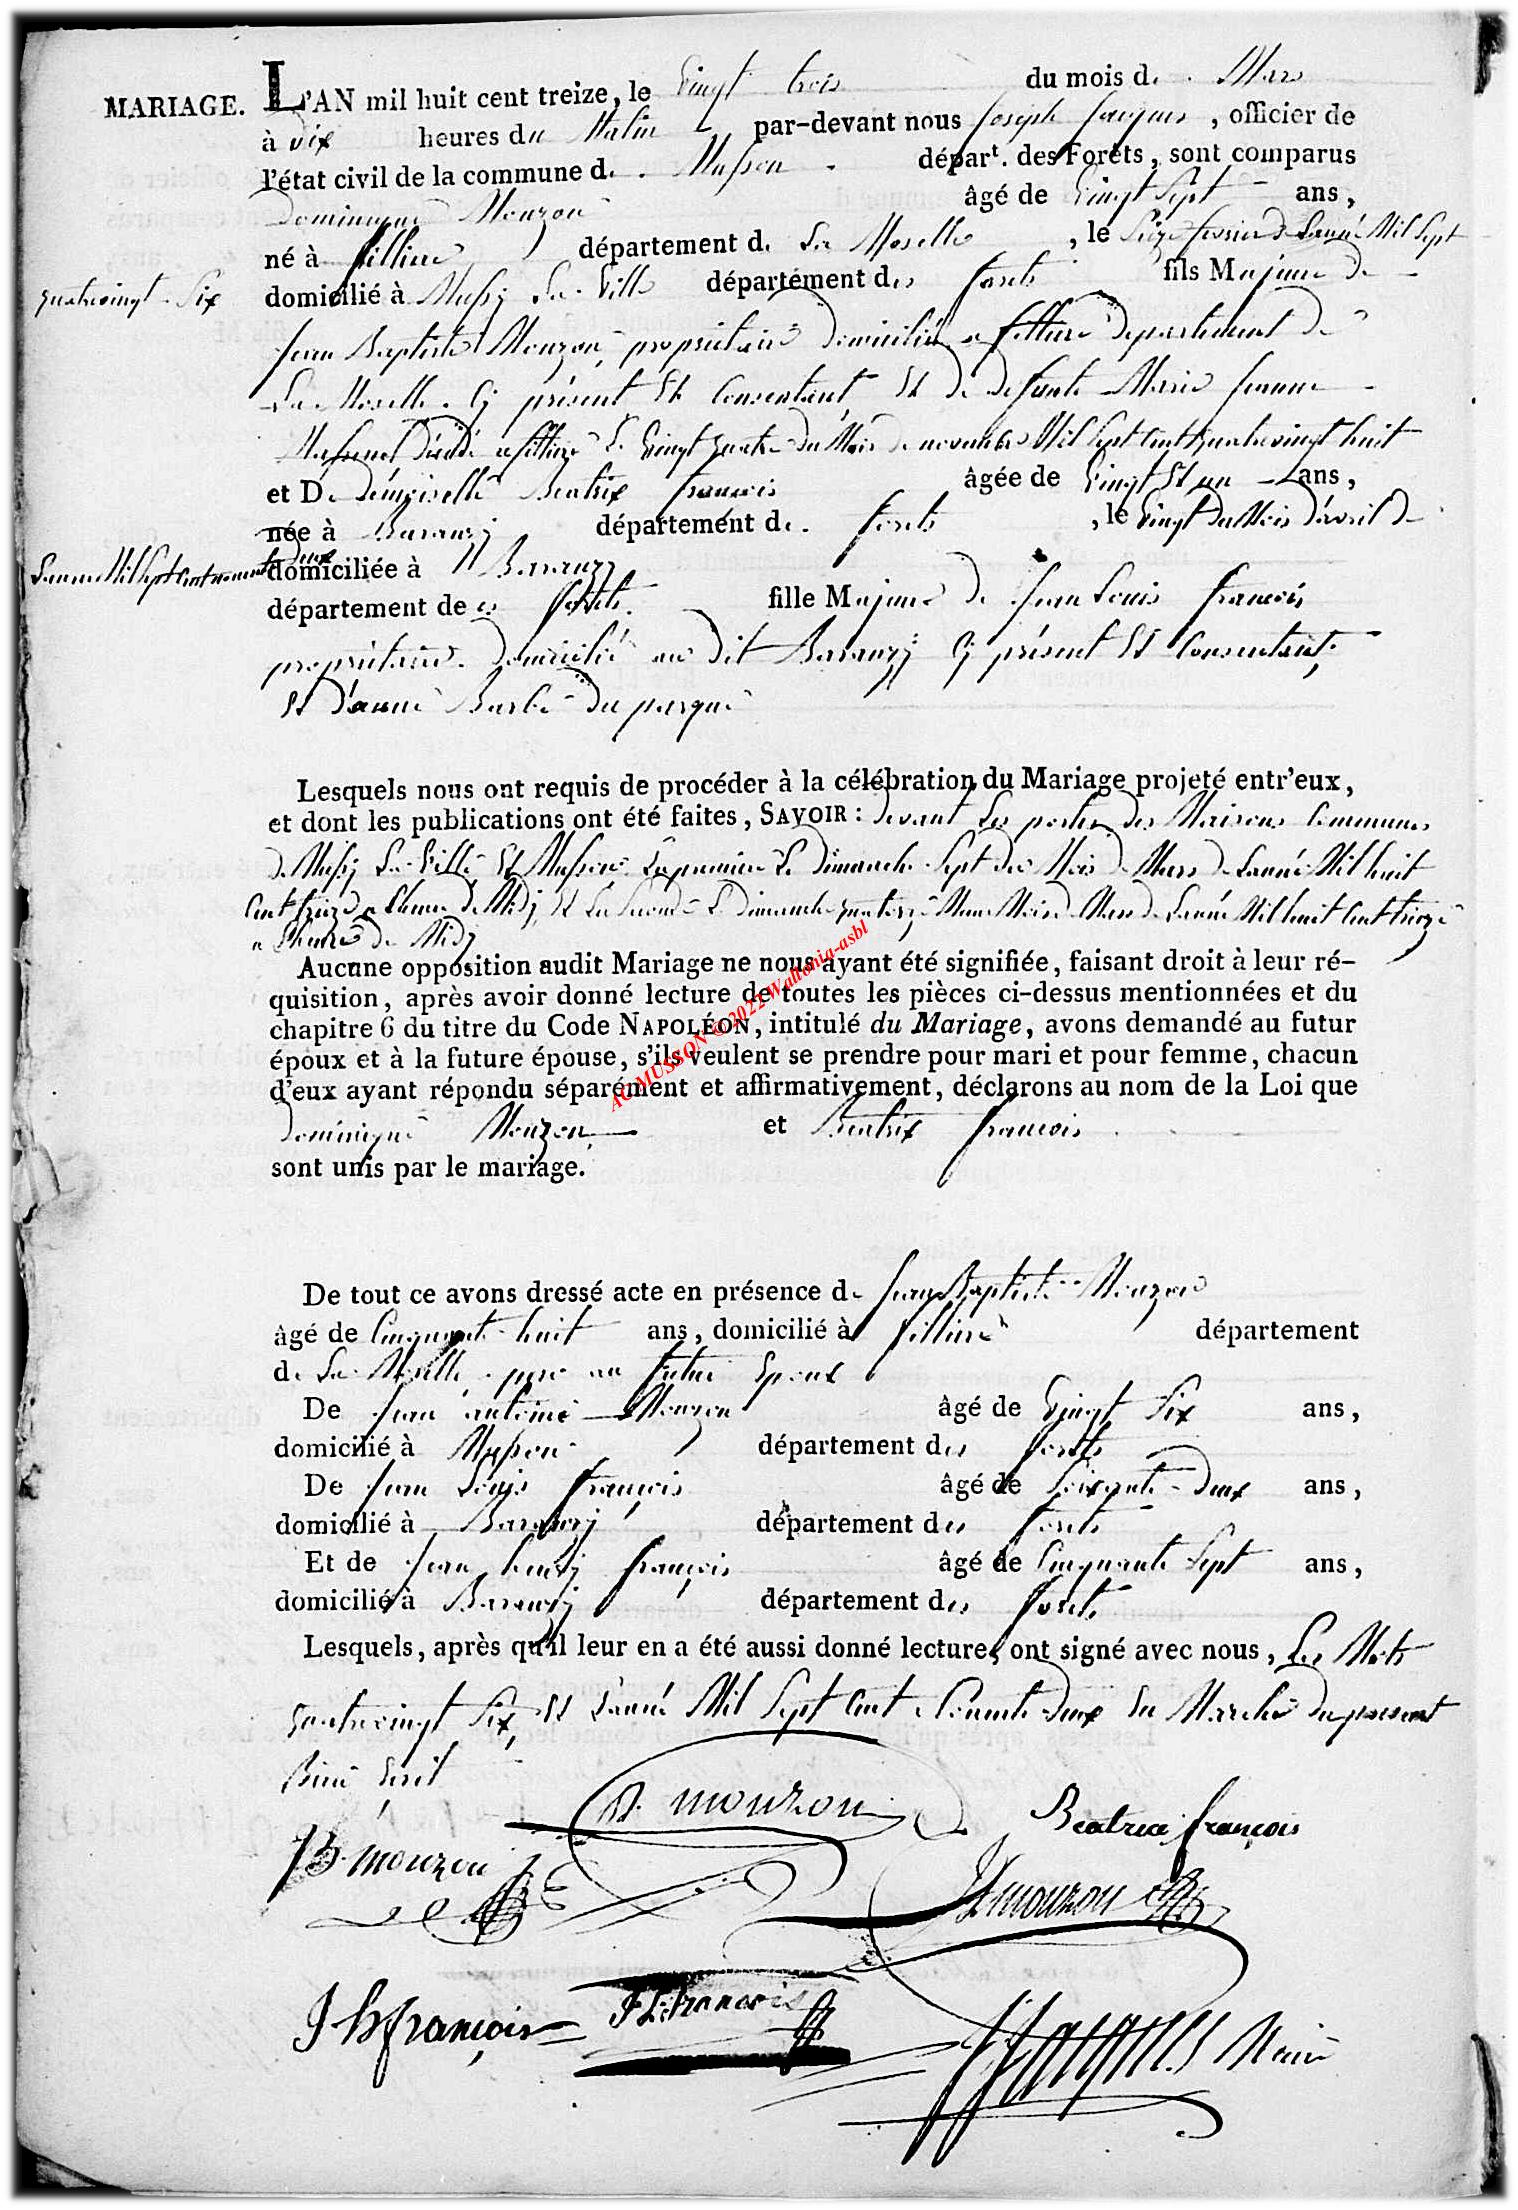 MARIAGE. L'AN mil huit cent treize, le Vingt trois du mois de Mars
à dix heures du Matin, par-devant nous Joseph Jacques, officier de
l'état civil de la commune de Musson départ. des Forêts, sont comparus
Dominique Mouzon âgé de Vingt Sept ans,
né à fillière département de La Moselle, le Seize fevrier de Lanné Mil Sept
quatrevingt Six
domicilié à Mussy La Ville département des forets fils Majeure de
Jean Baptiste Mouzon, propriétaire domicilié a fillière departement de
La Moselle. Cy présent Et Consentant, Et de defunte Marie Jeanne
décédé a fillière Le Vingt quatre du Mois de novembre Mil Sept Cent quatrevingt huit
et De Demoiselle Beatrix François âgée de Vingt Et un ans,
née à Baranzy département des forets, le Vingt du Mois d'avril de
Lanné Mil Sept Cent nonente deux
domiciliée à Baranzy
département des forets. fille Majeure de Jean Louis François
propriétaire domicilié au dit Baranzy Cy présent Et Consentant,
Et d'anne Barbe du parque
Lesquels nous ont requis de procéder à la célébration du Mariage projeté entr'eux,
et dont les publications ont été faites, SAVOIR : devant Les portes des Maisons Communes
de Mussy La Ville Et Musson La premiere Le dimanche Sept du Mois de Mars de Lanné Mil huit
Cent treize a L'heure de Midy, Et La Seconde Le dimanche quatorze Meme Mois de Mars de Lanné Mil huit Cent treize
a L'heure de Midy
Aucune opposition audit Mariage ne nous ayant été signifiée, faisant droit à leur ré-
quisition, après avoir donné lecture de toutes les pièces ci-dessus mentionnées et du
chapitre 6 du titre du Code NAPOLÉON, intitulé du Mariage, avons demandé au futur
époux et à la future épouse, s'ils veulent se prendre pour mari et pour femme, chacun
d'eux ayant répondu séparément et affirmativement, déclarons au nom de la Loi que
Dominique Mouzon et Beatrix François
sont unis par le mariage.
AC MUSSON © 2022 Wallonia-asbl
De tout ce avons dressé acte en présence de Jean Baptiste Mouzon
âgé de Cinquante huit ans, domicilié à fillière département
de La Moselle. pere au futur Epoux
De Jean antoine Mouzon âgé de Vingt Six ans,
domicilié à Musson département des forets
De Jean Louis François âgé de Soixante deux ans,
domicilié à Baranzy département des forets
Et de Jean henry françois âgé de Cinquante Sept ans,
domicilié à Baranzy département des forets
Lesquels, après qu'il leur en a été aussi donné lecture, ont signé avec nous, Les Mots
quatrevingt Six, Et Lanné Mil Sept Cent Nonente deux En Marche du present
Bien Ecrit
D. mouzon Beatrice françois
JB. mouzon
JA mouzon
J h françois JL. francois
J Jacques Maire